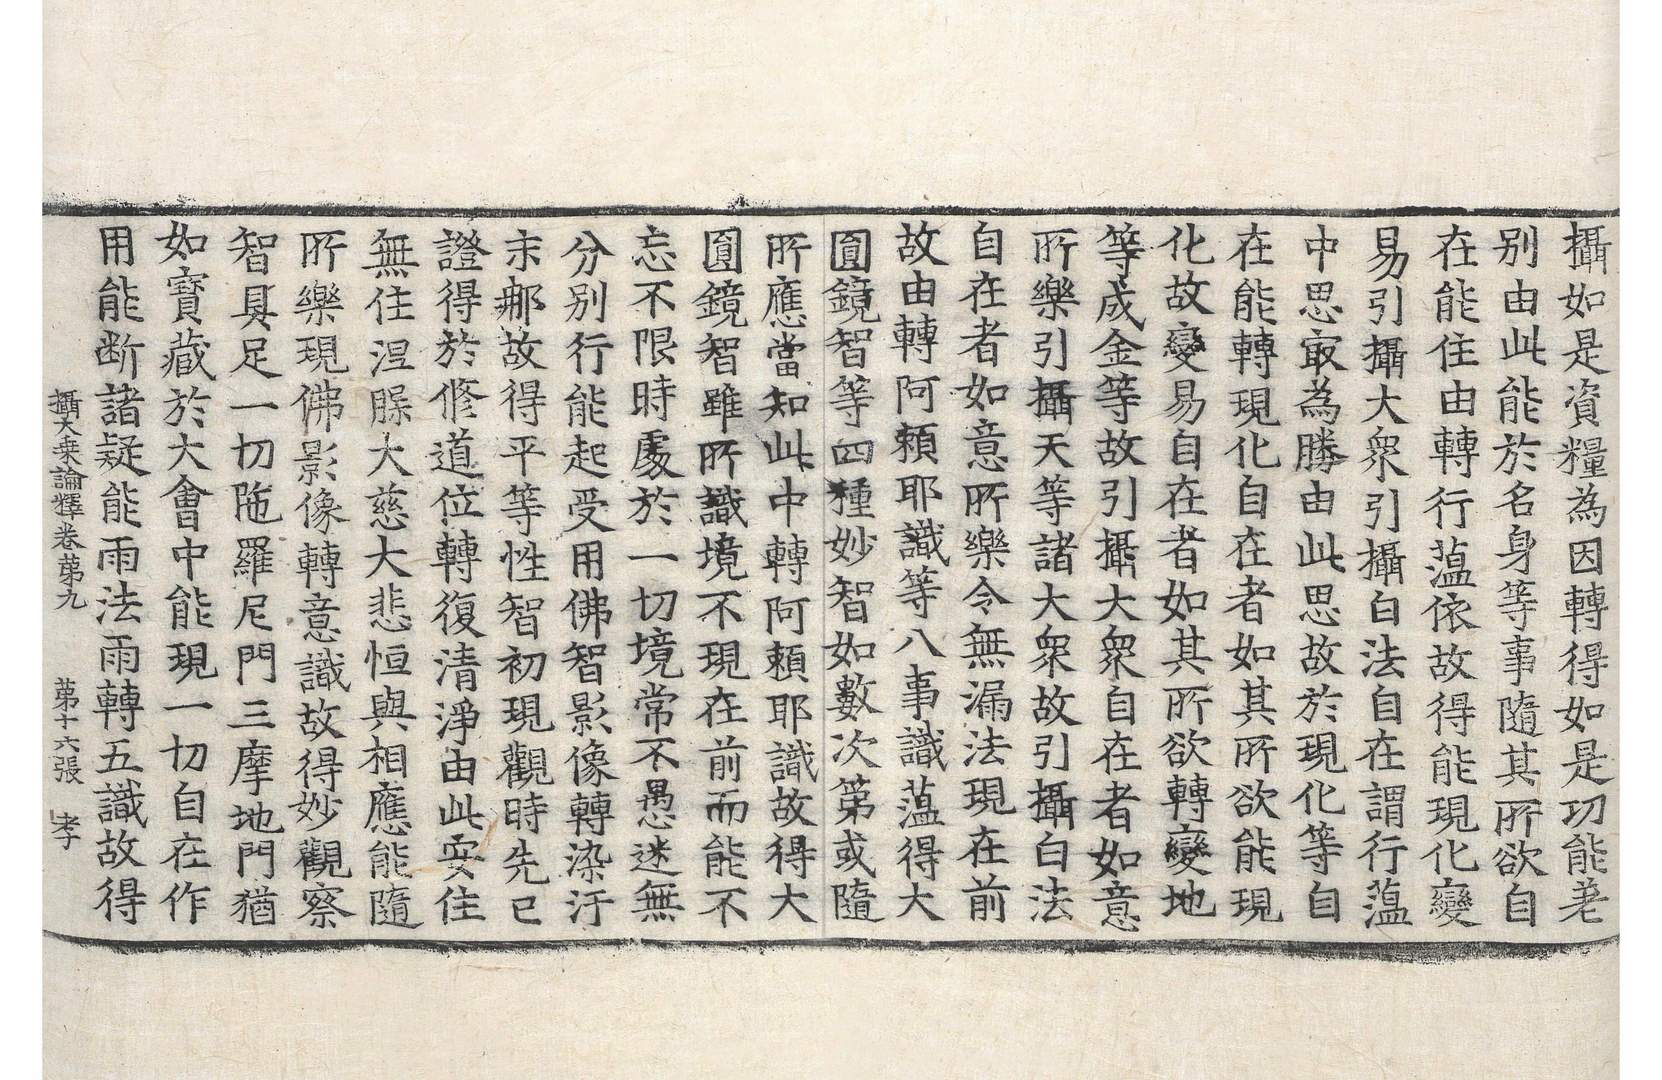 攝如是資糧為因轉得如是功能差
别由此能於名身等事隨其所欲自
在能住由轉行薀依故得能現化變
易引攝大衆引攝白法自在謂行薀
中思㝡為勝由此思故於現化等自
在能轉現化自在者如其所欲能現
化故變易自在者如其所欲轉變地
等成金等故引攝大衆自在者如意
所樂引攝天等諸大衆故引攝白法
自在者如意所樂令無漏法現在前
故由轉阿頼耶識等八事識薀得大
圓鏡智等四種妙智如數次第或隨
所應當知此中轉阿頼耶識故得大
圓鏡智雖所識境不現在前而能不
忘不限時處於一切境常不愚迷無
分别行能起受用佛智影像轉染汙
末那故得平等性智初現觀時先已
證得於修道位轉復清淨由此安住
無住涅槃大慈大悲恒與相應能隨
所樂現佛影像轉意識故得妙觀察
智具足一切陁羅尼門三摩地門猶
如寶藏於大會中能現一切自在作
用能断諸疑能雨法雨轉五識故得
攝大乗論釋卷苐九 苐十六張 孝